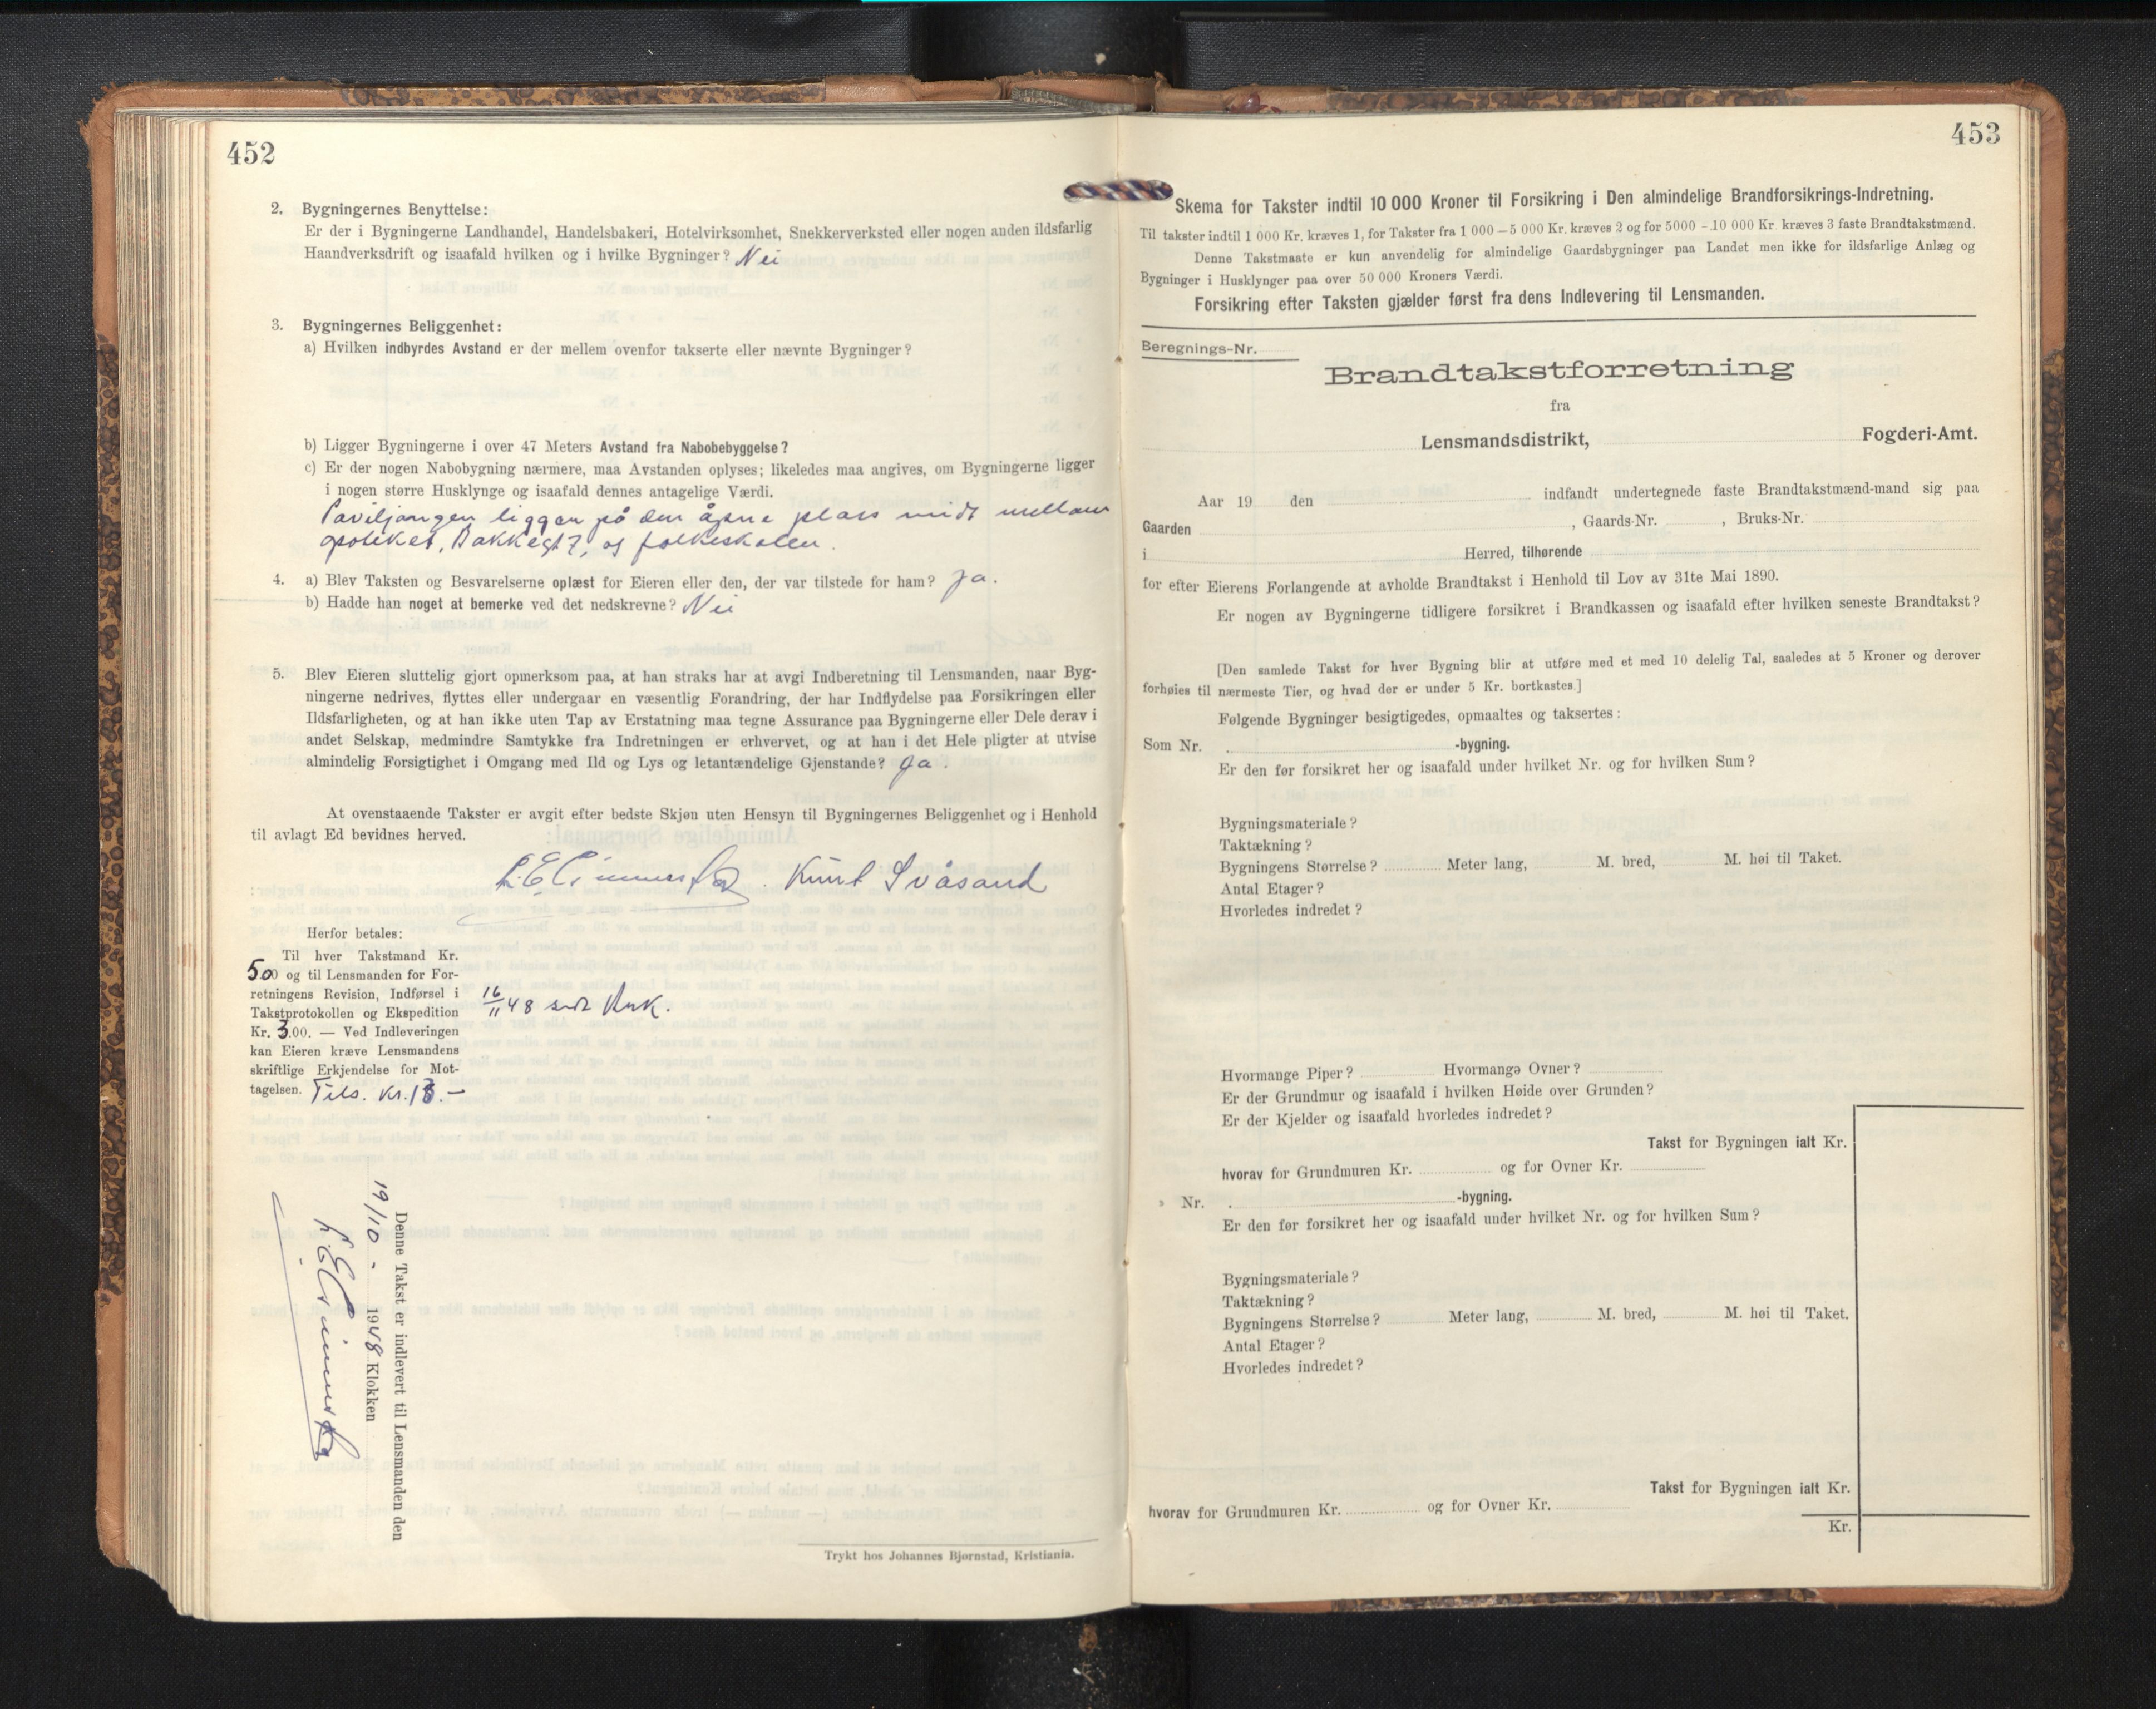 452
2. Bygningernes Benyttelse:
Er der i Bygningerne Landhandel, Handelsbakeri, Hotelvirksomhet, Snekkerverksted eller nogen anden ildsfarlig
Haandverksdrift og isaafald hvilken og i hvilke Bygninger? Nei
3. Bygningernes Beliggenhet:
a) Hvilken indbyrdes Avstand er der mellem ovenfor takserte eller nævnte Bygninger?
b) Ligger Bygningerne i over 47 Meters Avstand fra Nabobebyggelse?
c) Er der nogen Nabobygning nærmere, maa Avstanden oplyses; likeledes maa angives, om Bygningerne ligger
i nogen større Husklynge og isaafald dennes antagelige Værdi.
Paviljongen ligger på den åpne plass midt mellom
apoteket, Bakkegt 7, og folkeskolen.
4. a) Blev Taksten og Besvarelserne oplæst for Eieren eller den, der var tilstede for ham? Ja.
b) Hadde han noget at bemerke ved det nedskrevne? Nei
5. Blev Eieren sluttelig gjort opmerksom paa, at han straks har at avgi Indberetning til Lensmanden, naar Byg-
ningerne nedrives, flyttes eller undergaar en væsentlig Forandring, der har Indflydelse paa Forsikringen eller
Ildsfarligheten, og at han ikke uten Tap av Erstatning maa tegne Assurance paa Bygningerne eller Dele derav i
andet Selskap, medmindre Samtykke fra Indretningen er erhvervet, og at han i det Hele pligter at utvise
almindelig Forsigtighet i Omgang med Ild og Lys og letantændelige Gjenstande? Ja.
At ovenstaaende Takster er avgit efter bedste Skjøn uten Hensyn til Bygningernes Beliggenhet og i Henhold
til avlagt Ed bevidnes herved.
Knut Svåsand
Herfor betales:
Til hver Takstmand Kr.
5.00 og til Lensmanden for For-
retningens Revision, Indførsel i
Takstprotokollen og Ekspedition
Kr. 3.00. — Ved Indleveringen
kan Eieren kræve Lensmandens
skriftlige Erkjendelse for Mot-
tagelsen. Tils. Kr. 13.-
16/11 48 sendt
Denne Takst er indlevert til Lensmanden den
19/10 - 1948 Klokken
Trykt hos Johannes Bjørnstad, Kristiania.
453
Skema for Takster indtil 10 000 Kroner til Forsikring i Den almindelige Brandforsikrings-Indretning.
Til takster indtil 1 000 Kr. kræves 1, for Takster fra 1 000 — 5 000 Kr. kræves 2 og for 5000 - 10 000 Kr. kræves 3 faste Brandtakstmænd.
Denne Takstmaate er kun anvendelig for almindelige Gaardsbygninger paa Landet men ikke for ildsfarlige Anlæg og
Bygninger i Husklynger paa over 50 000 Kroners Værdi.
Forsikring efter Taksten gjælder først fra dens Indlevering til Lensmanden.
Beregnings-Nr.
Brandtakstforretning
fra
Lensmandsdistrikt, Fogderi-Amt.
Aar 19 den indfandt undertegnede faste Brandtakstmænd-mand sig paa
Gaarden , Gaards-Nr. , Bruks-Nr.
i Herred, tilhørende
for efter Eierens Forlangende at avholde Brandtakst i Henhold til Lov av 31te Mai 1890.
Er nogen av Bygningerne tidligere forsikret i Brandkassen og isaafald efter hvilken seneste Brandtakst?
[Den samlede Takst for hver Bygning blir at utføre med et med 10 delelig Tal, saaledes at 5 Kroner og derover
forhøies til nærmeste Tier, og hvad der er under 5 Kr. bortkastes.]
Følgende Bygninger besigtigedes, opmaaltes og taksertes:
Som Nr. . -bygning.
Er den før forsikret her og isaafald under hvilket Nr. og for hvilken Sum?
Bygningsmateriale?
Taktækning?
Bygningens Størrelse? Meter lang, M. bred, M. høi til Taket.
Antal Etager?
Hvorledes indredet?
Hvormange Piper? Hvormange Ovner?
Er der Grundmur og isaafald i hvilken Høide over Grunden?
Er der Kjelder og isaafald hvorledes indredet?
Takst for Bygningen ialt Kr.
hvorav for Grundmuren Kr. og for Ovner Kr.
» Nr. . -bygning.
Er den før forsikret her og isaafald under hvilket Nr. og for hvilken Sum?
Bygningsmateriale?
Taktækning?
Bygningens Størrelse? Meter lang, M. bred, M. høi til Taket.
Antal Etager?
Hvorledes indredet?
Takst for Bygningen ialt Kr.
hvorav for Grundmuren Kr. og for Ovner Kr.
Kr.